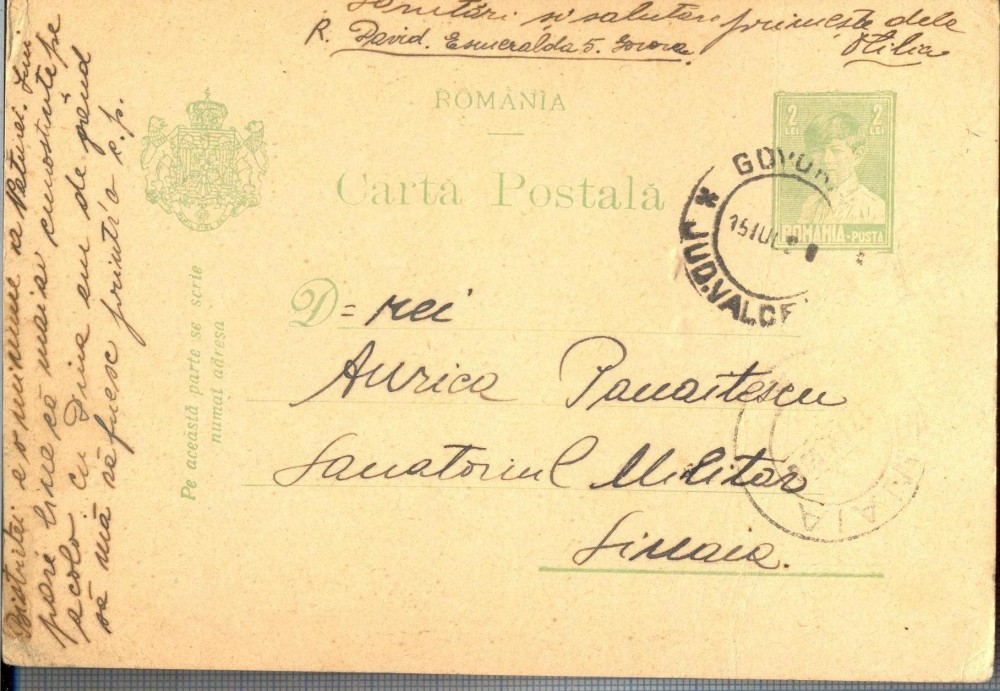 și salutări primește dela
Otilia
R. David. Esmeralda 5. Govora.
ROMÂNIA
Carta Postală
2 LEI 2 LEI
ROMANIA-POSTA
GOVORA
15 IUL
* JUD. VALCE
D=rei
Aurica Panaitescu
Sanatoriul Militar
Sinaia.
SINAIA
Pe această parte se scrie
numai adresa
Bistriței e o minune a Naturei. Îmi
pare bine că mai ai cunoștințe pe
acolo. cu Dina am de gând
să mă sfuesc printr'o c.p.